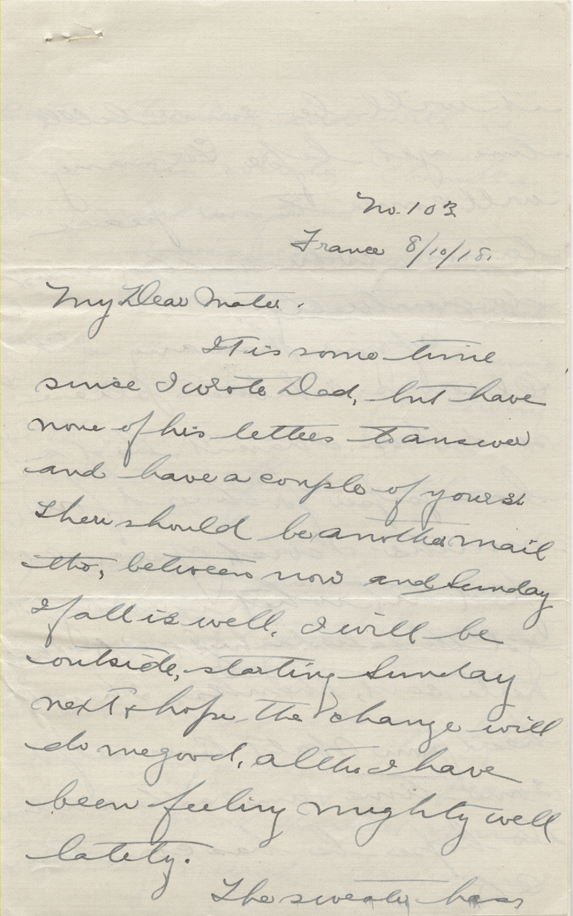 No. 103
France 8/10/18.
My Dear Mater.
It is some time
since I wrote Dad, but have
none of his letters to answer
and have a couple of yours.
There should be another mail
tho, between now and Sunday
If all is well, I will be
outside, starting Sunday
next & hope the change will
do me good, altho I have
been feeling mighty well
lately.
The sweater has